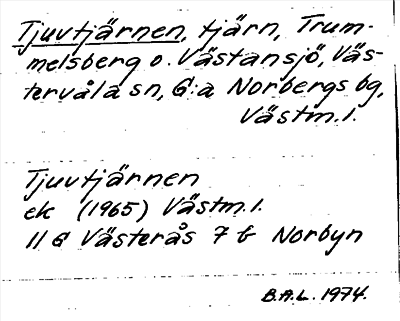 Tjuvtjärnen, tjärn, Trum-
melsberg o. Västansjö, Väs-
tervåla sn, G:a Norbergs bg,
Västm. l.
Tjuvtjärnen
ek (1965) Västm. l.
11 G Västerås 7 b Norbyn
B.A.L. 1974.